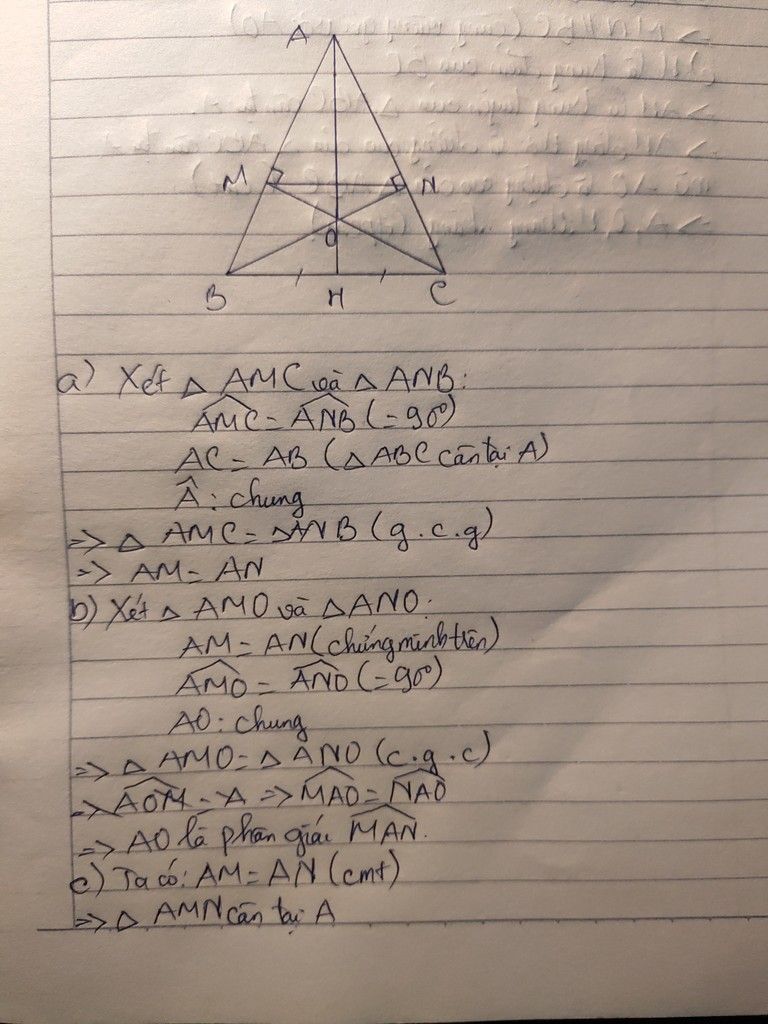 A
M
N
O
B
H
C
a) Xét △ AMC và △ ANB:
AMC = ANB (= 90°)
AC = AB (△ ABC cân tại A)
Â: chung
=> △ AMC = △ANB (g.c.g)
=> AM = AN
b) Xét △ AMO và △ ANO:
AM = AN (chứng minh trên)
AMO = ANO (= 90°)
AO: chung
=> △ AMO = △ ANO (c.g.c)
=> MAO = NAO
=> AO là phân giác MAN.
c) Ta có: AM = AN (cmt)
=> △ AMN cân tại A